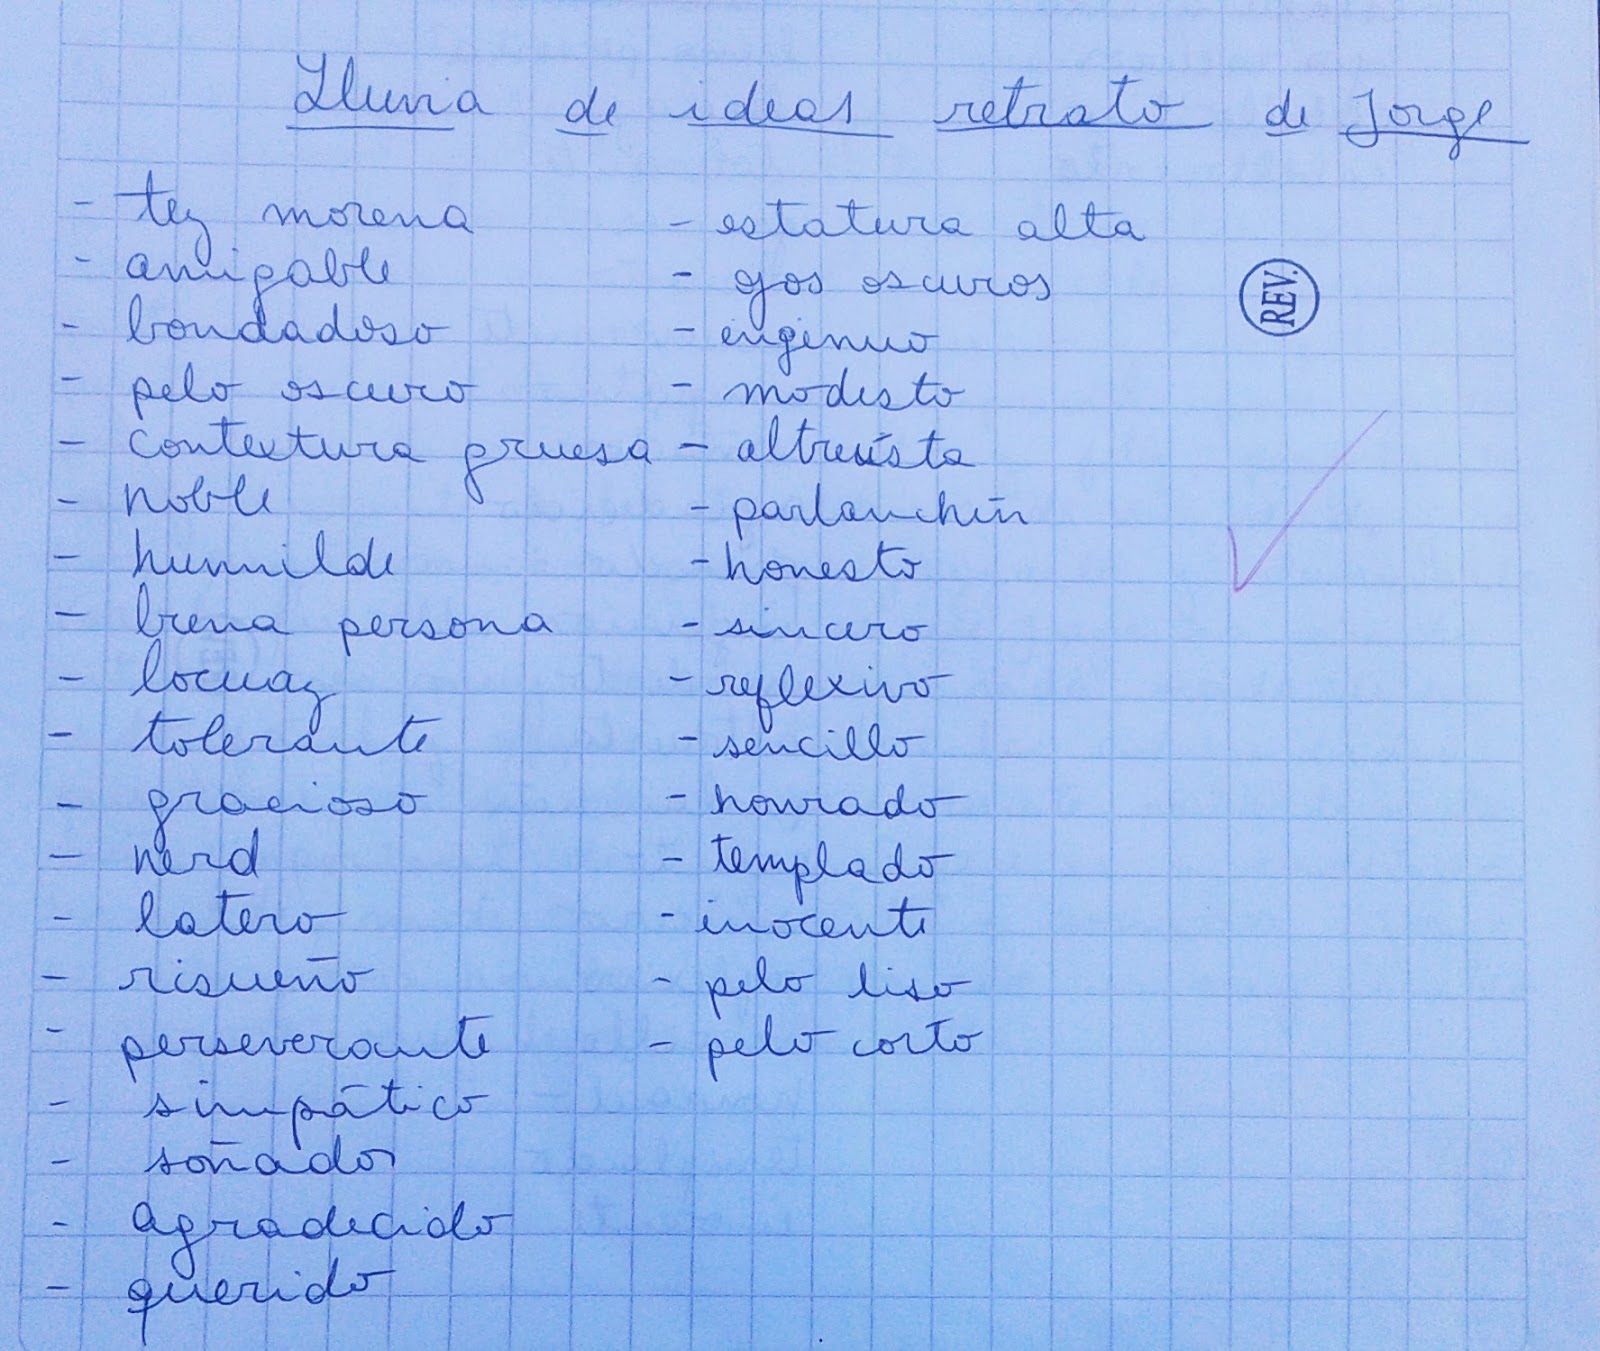 Lluvia de ideas retrato de Jorge
- tez morena
- amigable
- bondadoso
- pelo oscuro
- contextura gruesa
- noble
- humilde
- buena persona
- locuaz
- tolerante
- gracioso
- nerd
- latero
- risueño
- perseverante
- simpático
- soñador
- agradecido
- querido
- estatura alta
- ojos oscuros
- ingenuo
- modesto
- altruista
- parlanchín
- honesto
- sincero
- reflexivo
- sencillo
- honrado
- templado
- inocente
- pelo liso
- pelo corto
REV.